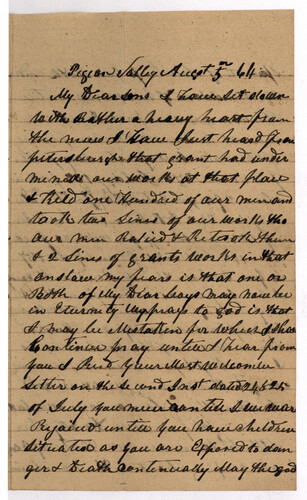 Pigeon Valley Augst 5th 64
My Dear sons I have set down
with Rather a heavy heart from
the news I have Just heard from
petersburge that grant had under
mined our works at that place
& kild one hundred of our men and
took two Lines of our works tho
our men Ralied & Retook them
& 2 Lines of grants works in that
my fears is that one or
Both of My Dear boys may now be
in Eternity My prays to god is that
I may be Mistaken for Which I shall
Continue pray until I hear from
you I Recd your Most Welcome
Letter on the Second Inst dated 24 & 25
of July you never can tell how
until you have children
situated as you are Exposed to dan
ger & Death continually May the god